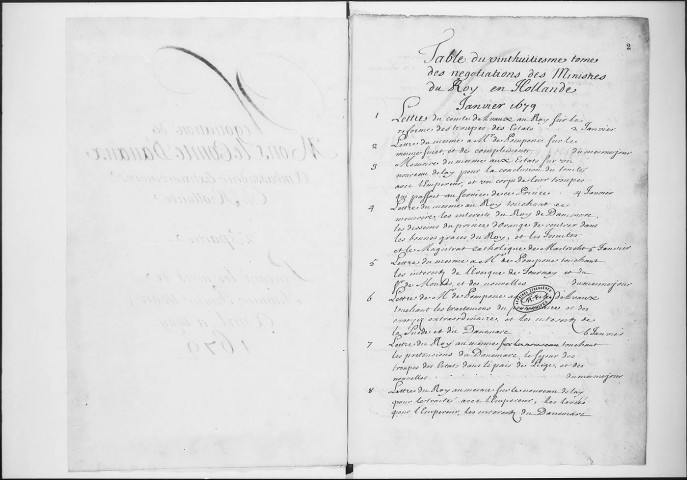 2
Table du vinthuitiesme tome
des negotiations des Ministres
du Roy en Hollande
Janvier 1679
1 Lettre du comte d'Avaux au Roy sur la
reforme des troupes des Estats 2 Janvier
2 Lettre du mesme a Mr de Pompone sur le
mesme sujet, et de complimens du mesme jour
3 Memoire du mesme aux Estats sur un
nouveau delay pour la conclusion du traité
avec l'Empereur, et un corps de leur troupes
qui passoit au service de ce Prince 4 Janvier
4 Lettre du mesme au Roy touchant ce
memoire, les interests du Roy de Danemarc,
les desseins du prince d'Orange de rentrer dans
les bonnes graces du Roy, et les Jesuites
et le Magistrat catholique de Mastricht 5 Janvier
5 Lettre du mesme a Mr de Pompone touchant
les interests de l'Evesque de Tournay et du
Pce de et des nouvelles du mesme jour
6 Lettre de Mr de Pompone a d'Avaux
touchant les traitemens du et des
envoyez extraordinaires, et les interests de
la Suede et du Danemarc 6 Janvier
7 Lettre du Roy au mesme touchant
les pretensions du Danemarc, le sejour des
troupes des Estats dans le païs de Liege, et des
nouvelles du mesme jour
8 Lettre du Roy au mesme sur le nouveau delay
pour le traité avec l'Empereur, les
pour l'Empereur, les interests du Danemarc
Monsr le Comte Davaux
1679